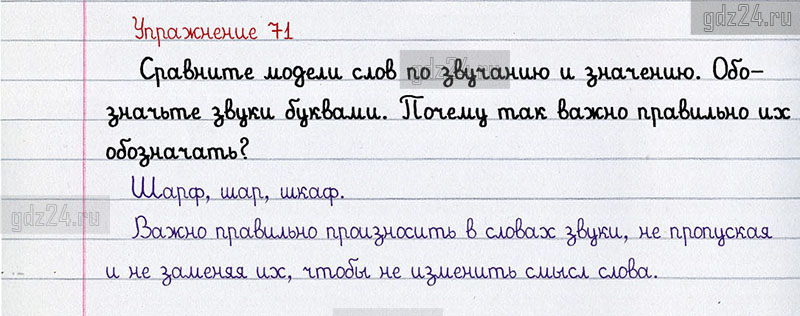 gdz24.ru
Упражнение 71
gdz24.ru
Сравните модели слов по звучанию и значению. Обо-
значьте звуки буквами. Почему так важно правильно их
обозначать?
Шарф, шар, шкаф.
gdz24.ru
Важно правильно произносить в словах звуки, не пропуская
и не заменяя их, чтобы не изменить смысл слова.